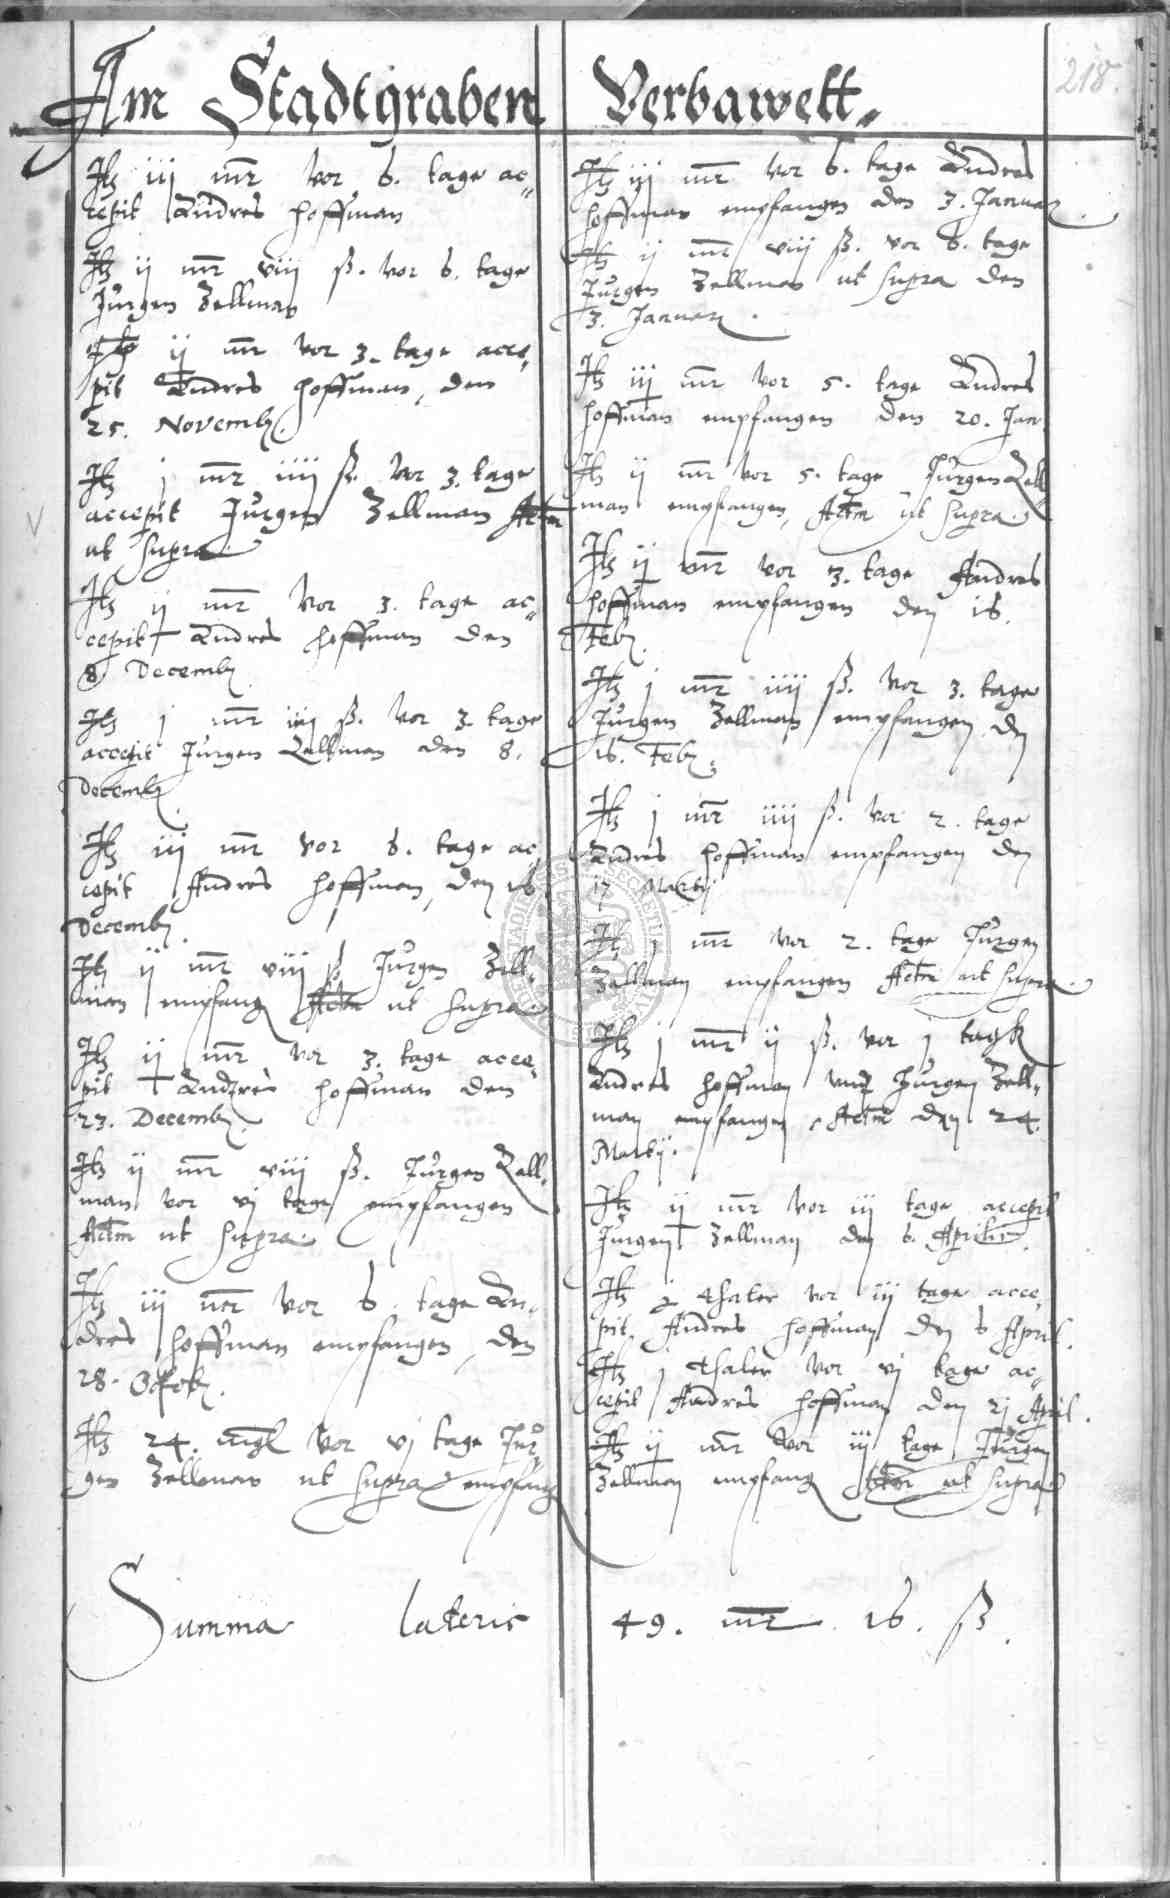 Am Stadtgraben Verbawett.
218.
Itz iij mr vor 6. tage ac-
cepit Andres Hoffman
Itz ij mr viij ß. vor 6. tage
Jurgen Zellman
Itz ij mr vor 3. tage acce-
pit Andres Hoffman, den
25. Novemb.
Itz j mr iiij ß. vor 3. tage
accepit Jurgen Zellman Actm
ut supra.
Itz ij mr vor 3. tage ac-
cepit Andres Hoffman den
8 Decemb
Itz j mr iiij ß. vor 3. tage
accepit Jurgen Zellman den 8.
Decemb
Itz iij mr vor 6. tage ac-
cepit Andres Hoffman, den 16
Decemb
Itz ij mr viij ß Jurgen Zell-
man empfang Actm ut supra.
Itz ij mr vor 3. tage acce-
pit Andres Hoffman den
23. Decemb.
Itz ij mr viij ß. Jurgen Zell-
man vor vj tage empfangen
Actm ut supra.
Itz iij mr vor 6. tage An-
dres Hoffman empfangen, den
28. Octob.
Itz 24. mgl vor vj tage Jur-
gen Zellman ut supra empfang
Itz iij mr vor 6. tage Andres
Hoffman empfangen den 3. Januar.
Itz ij mr viij ß. vor 6. tage
Jurgen Zellman ut supra den
3. Januar.
Itz iij mr vor 5. tage Andres
Hoffman empfangen den 20. Jan.
Itz ij mr vor 5. tage Jurgen Zell-
man empfangen, Actm ut supra.
Itz ij mr vor 3. tage Andres
Hoffman empfangen den 16.
Feb.
Itz j mr iiij ß. vor 3. tage
Jurgen Zellman empfangen den
16. Feb.
Itz j mr iiij ß. vor 2. tage
Andres Hoffman empfangen den
17 Martij
Itz j mr vor 2. tage Jurgen
Zellman empfangen Actm ut supra.
Itz j mr ij ß. vor j tagk
Andres Hoffman vnd Jurgen Zell-
man empfangen, Actm den 24.
Martij.
Itz ij mr vor iij tage accepit
Jurgen Zellman den 6. Aprilis.
Itz thaler vor iij tage acce-
pit Andres Hoffman den 6 April.
Itz j thaler vor vj tage ac-
cepit Andres Hoffman den 21 April.
Itz ij mr vor iij tage Jurgen
Zellman empfang Actm ut supra
Summa lateris 49. mr 16. ß.